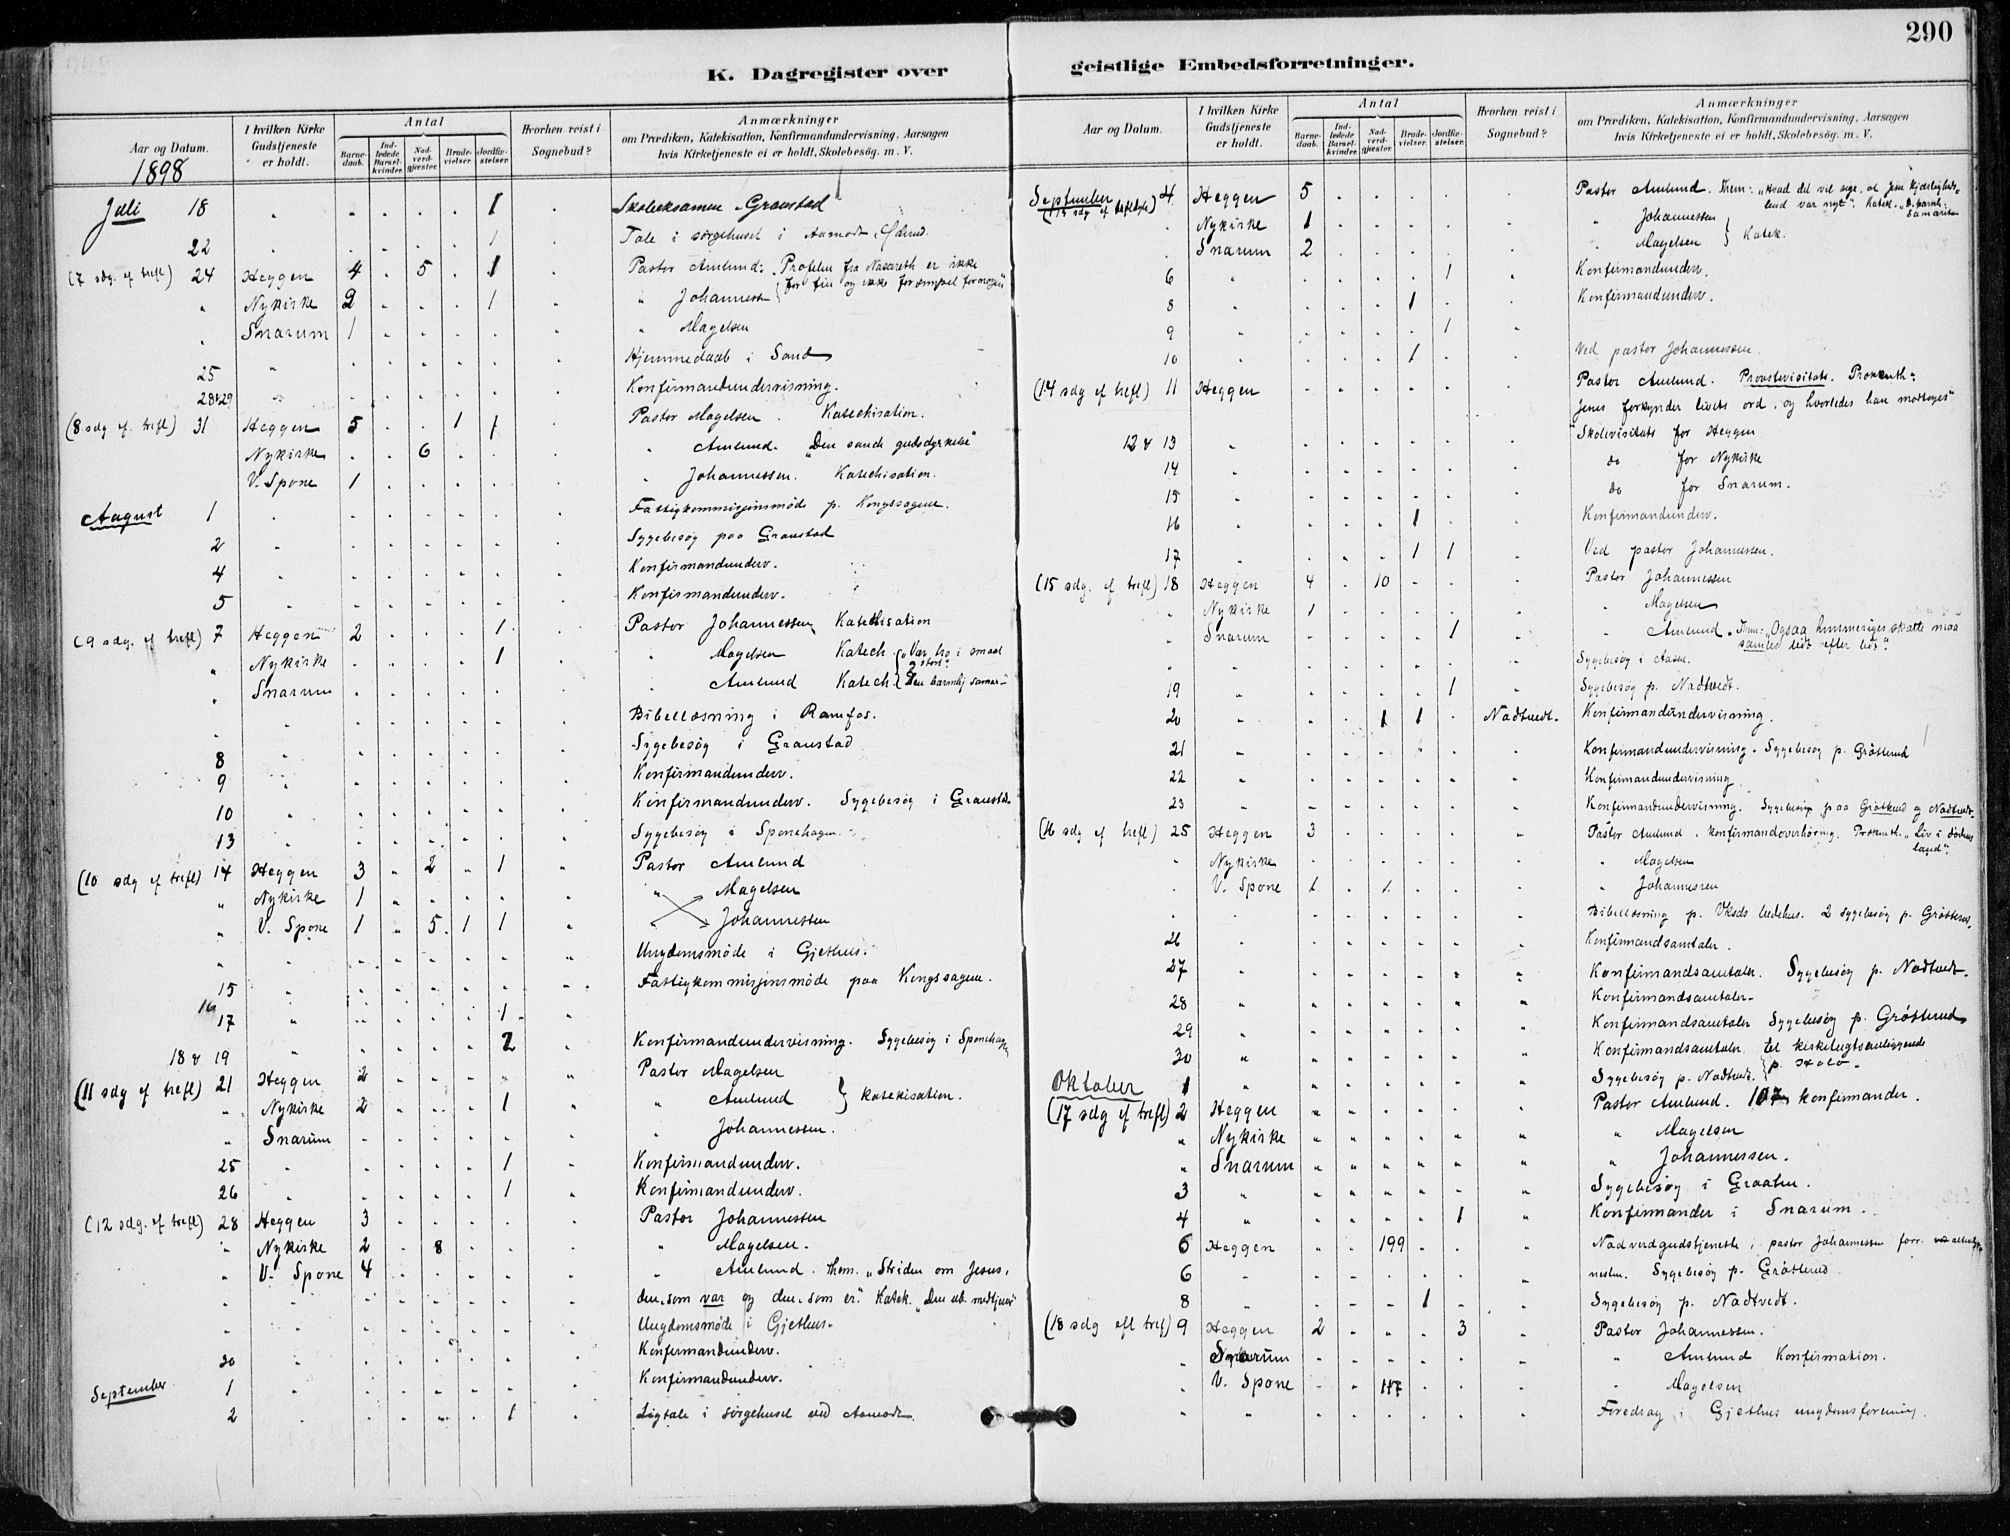 290
K. Dagregister over geistlige Embedsforretninger.
Aar og Datum. I hvilken Kirke Gudstjeneste er holdt. Antal Barnedaab. Indledede Barselkvinder. Nadverdgjester. Brudevielser. Jordfæstelser. Hvorhen reist i Sognebud? Anmærkninger om Prædiken, Katekisation, Konfirmandundervisning, Aarsagen hvis Kirketjeneste ei er holdt, Skolebesög. m. V.
1898
Juli 18 1 Skoleeksamen Graustad
22 1 Tale i sörgehuset i Aamodt
(7 sdg. ef trefl) 24 Heggen 4 5 1 Pastor Amlund: Profeten fra Nasareth er ikke
for fin og ikke for simpel for nogen"
" Nykirke 2 1 " Johannessen
Snarum 1 " Magelsen
25 Hjemmedaab i Sand
28&29 Konfirmandundervisning.
(8 sdg ef. trefl) 31 Heggen 5 1 1 Pastor Magelsen. Katechisation.
Nykirke 6 " Amlund. "Den sande gudsdyrkelse"
V. Spone 1 " Johannessen. Katechisation.
August 1 Fattigkommisjonsmöde p. Kongssagene.
2 Sygebesög paa Graustad
4 Konfirmandunderv.
5 Konfirmandunderv.
(9 sdg. ef trefl) 7 Heggen 2 1 Pastor Johannessen Katechisation
" Nykirke 1 " Magelsen Katech.
" Snarum " Amlund Katech.
Bibellæsning i Ramfos.
8 Sygebesög i Graustad
9 Konfirmandunderv.
10 Konfirmandunderv. Sygebesög i Graustad
13 Sygebesög i Sponehagen.
(10 sdg ef trefl) 14 Heggen 3 " 2 " 1 Pastor Amlund
" Nykirke 1 " " Magelsen
" V. Spone 1 " 5 1 1 Johannessen
" Ungdomsmöde i Gjethus.
15 Fattigkommisjonsmöde paa Kongssagene.
16
17 1
18 & 19 2 Konfirmandundervisning. Sygebesög i Sponehagen
(11 sdg ef trefl) 21 Heggen 2 Pastor Magelsen
" Nykirke 2 1 " Amlund } katekisation.
" Snarum " Johannessen.
25 1 Konfirmandunderv.
26 1 Konfirmandunderv.
(12 sdg. ef trefl) 28 Heggen 3 Pastor Johannessen
" Nykirke 2 8 " Magelsen.
" V. Spone 4 " Amlund. Them. "Striden om Jesus,
den, som var og den, som er". Katek.
Ungdomsmöde i Gjethus.
30 Konfirmandunderv.
September 1 Konfirmandunderv.
2 1 Ligtale i sörgehuset ved Aamodt
Aar og Datum. I hvilken Kirke Gudstjeneste er holdt. Antal Barnedaab. Indledede Barselkvinder. Nadverdgjester. Brudevielser. Jordfæstelser. Hvorhen reist i Sognebud? Anmærkninger om Prædiken, Katekisation, Konfirmandundervisning, Aarsagen hvis Kirketjeneste ei er holdt, Skolebesög. m. V.
September 4 Heggen 5 Pastor Amlund. Them: "Hvad det vil sige, at Jesu kjærligheds-
bud var nyt". Katek. "D. barmh. Samaritan
(13 sdg ef trefl)
Nykirke 1 " Johannessen
Snarum 2 " Magelsen } Katek.
6 1 Konfirmandunderv.
8 1 Konfirmandunderv.
9 1
10 1 Ved pastor Johannessen
(14 sdg ef trefl) 11 Heggen Pastor Amlund. Provstevisitats.
Jenes forkynder livets ord, og hvorledes han modtoges"
12 & 13 Skolevisitats for Heggen
14 do for Nykirke
15 do for Snarum.
16 1 Konfirmandunderv.
17 1 1 Ved pastor Johannessen.
(15 sdg. ef trefl) 18 Heggen 4 10 Pastor Johannessen
" Nykirke 1 " Magelsen
" Snarum 1 " Amlund. Them: "Ogsaa himmeriges skatte maa
samles lidt efter lidt".
Sygebesög i Aasen.
19 1 Sygebesög p. Nadtvedt.
20 1 1 Nadtvedt. Konfirmandundervisning.
21 Konfirmandundervisning. Sygebesög p Grötterud
22 Konfirmandundervisning
23 Konfirmandundervisning. Sygebesög paa Grötterud og Nadtvedt.
(16 sdg ef trefl) 25 Heggen 3 Pastor Amlund. konfirmandoverhöring. "Liv i dödens
land".
Nykirke " Magelsen
V. Spone 1 1 " Johannessen
Bibellæsning p. bedehus. 2 sygebesög p. Grötterud.
26 Konfirmandsamtaler.
27 Konfirmandsamtaler. Sygebesög p. Nadtvedt.
28 Konfirmandsamtaler.
29 Konfirmandsamtaler Sygebesög p. Grötterud
30 Konfirmandsamtaler
Oktober 1 Sygebesög p. Nadtvedt.
(17 sdg ef trefl) 2 Heggen Pastor Amlund. 107 konfirmander.
" Nykirke " Magelsen
" Snarum " Johannessen.
3 Sygebesög i Graaten.
4 1 Konfirmander i Snarum.
6 Heggen 199 Nadverdgudstjeneste, pastor Johannessen forr.
6 nesten. Sygebesög p. Grötterud
8 1 Sygebesög p. Nadtvedt.
(18 sdg eft tref) 9 Heggen 2 3 Pastor Johannessen.
" Snarum " Amlund Konfirmation.
" V. Spone 117 " Magelsen
" Foredrag i Gjethus ungdomsforening.